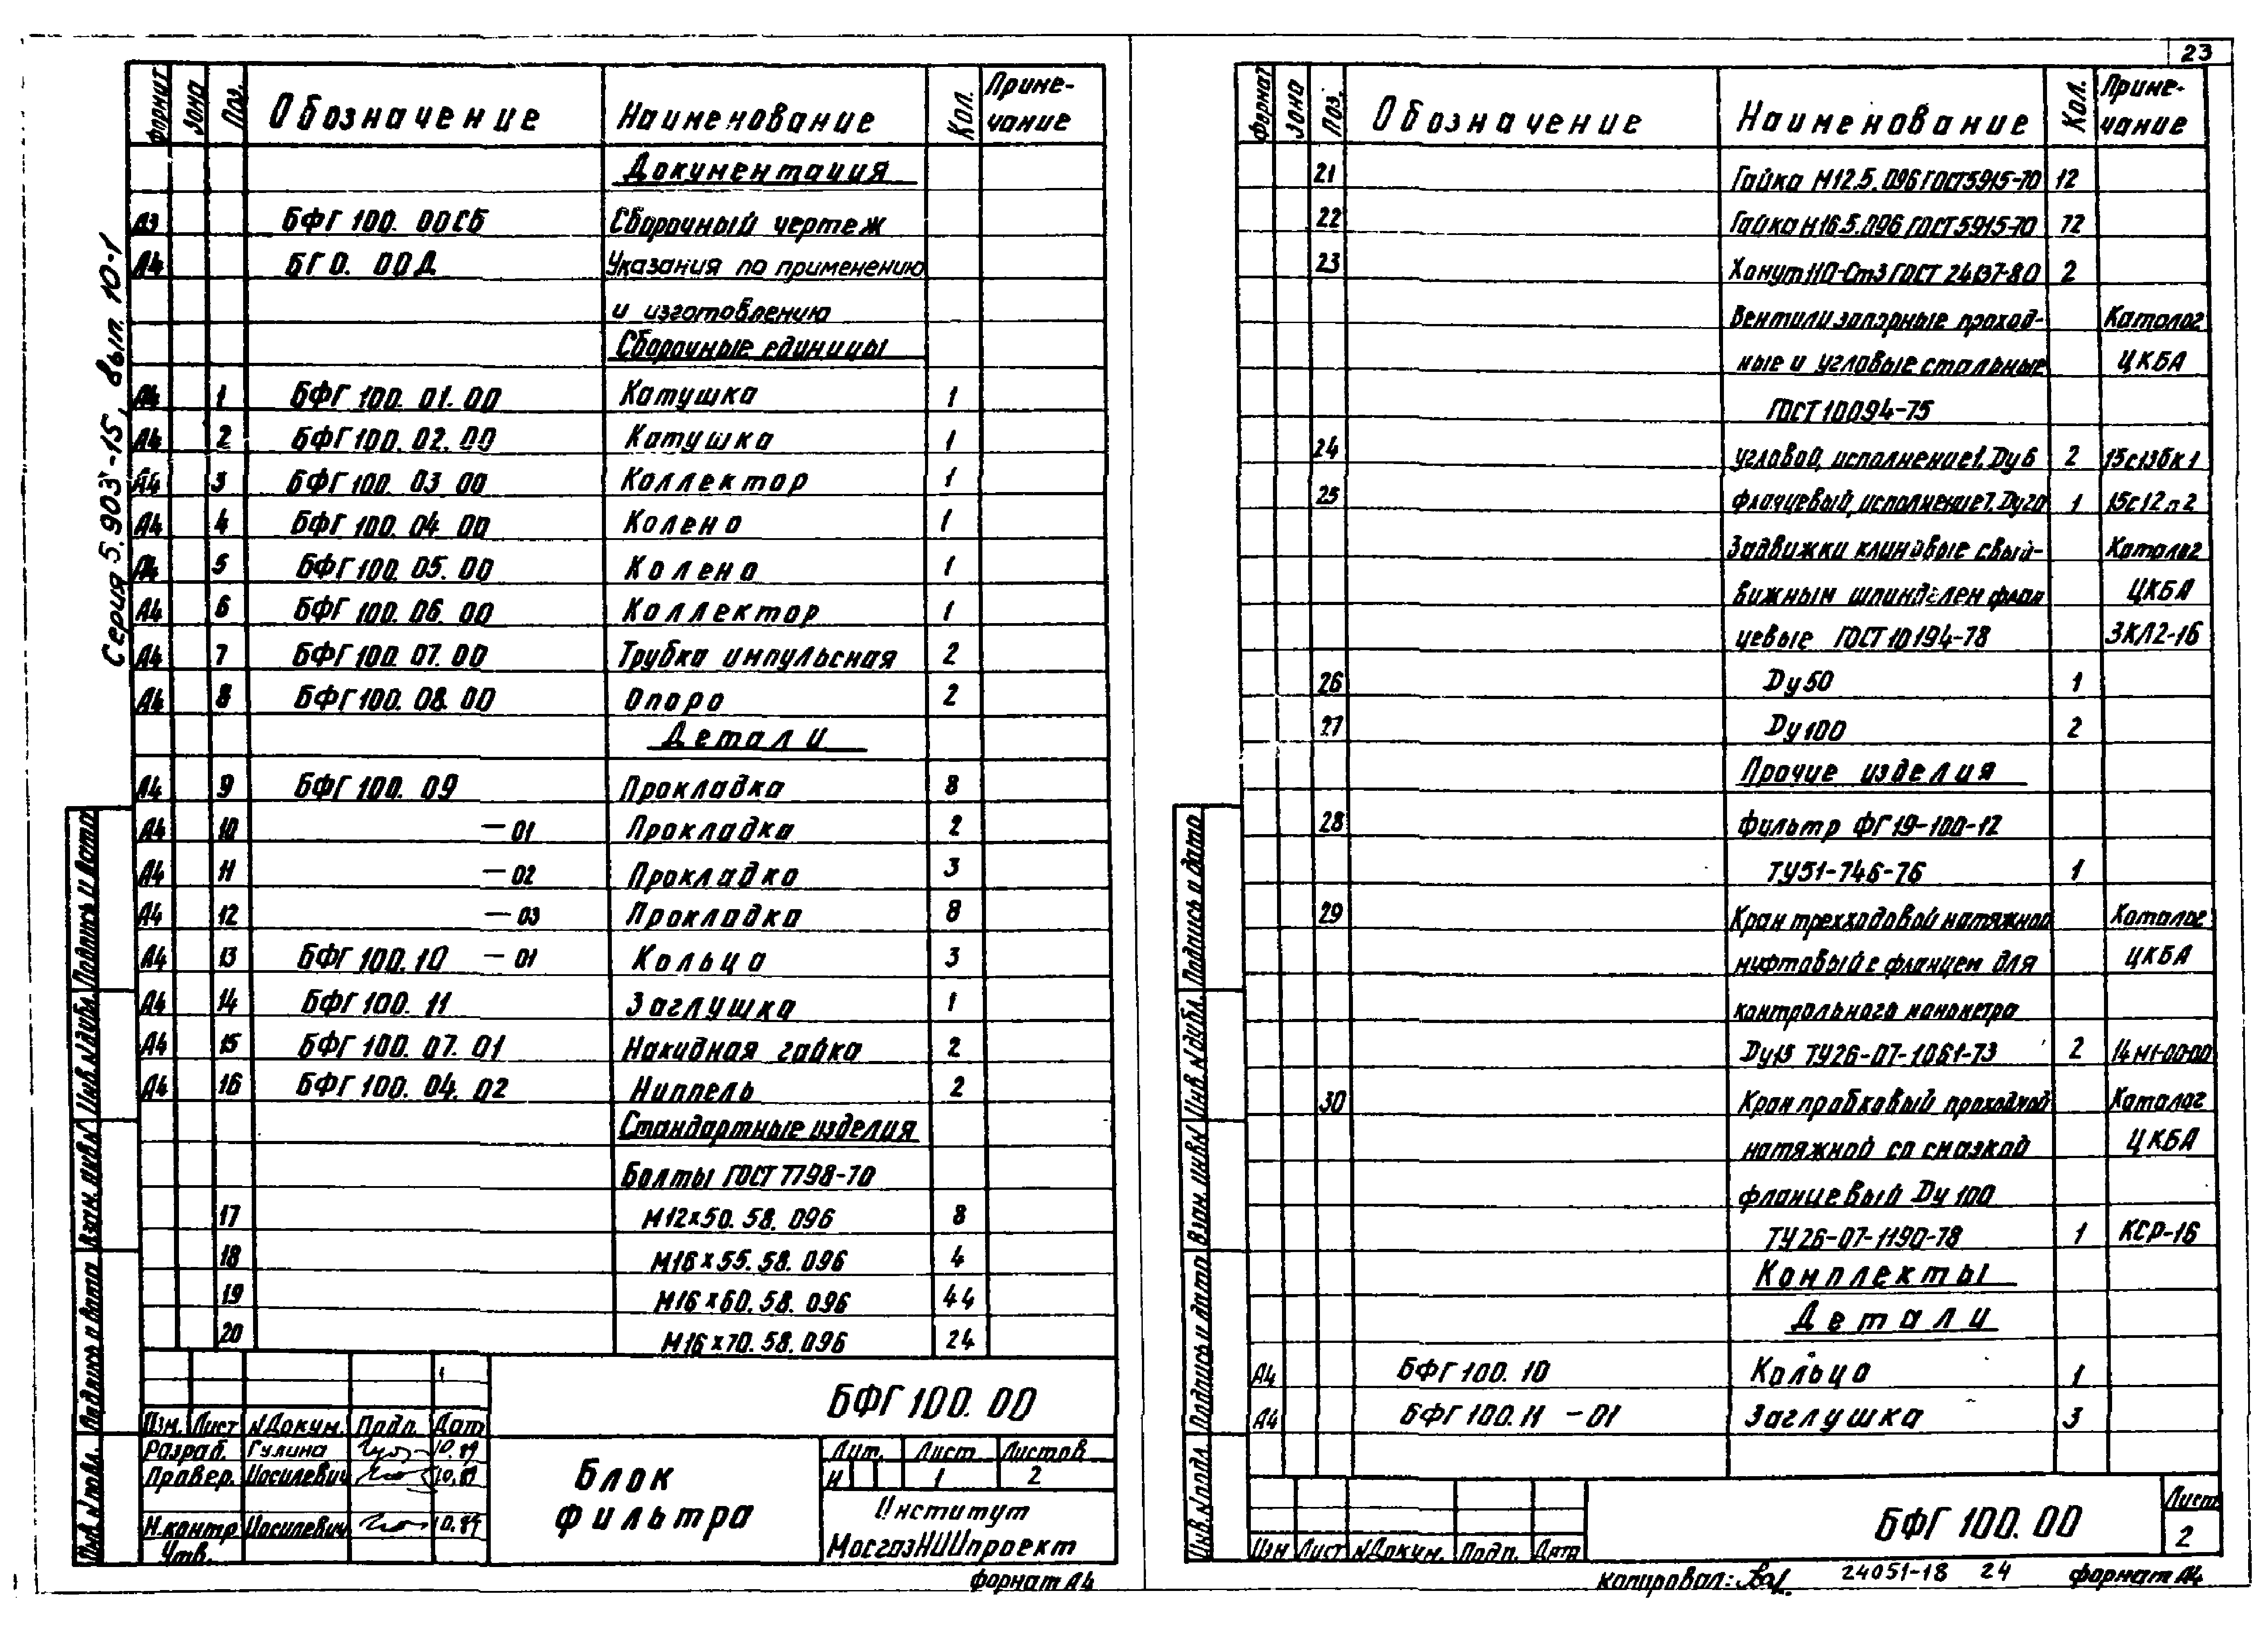 23
Серия 5.903-15, вып. 10-1
Формат Зона Поз. Обозначение Наименование Кол. Приме-
чание
Документация
А3 БФГ 100. 00СБ Сборочный чертеж
А4 БГ0. 00Д Указания по применению
и изготовлению
Сборочные единицы
А4 1 БФГ 100. 01. 00 Катушка 1
А4 2 БФГ 100. 02. 00 Катушка 1
А4 3 БФГ 100. 03. 00 Коллектор 1
А4 4 БФГ 100. 04. 00 Колено 1
А4 5 БФГ 100. 05. 00 Колено 1
А4 6 БФГ 100. 06. 00 Коллектор 1
А4 7 БФГ 100. 07. 00 Трубка импульсная 2
А4 8 БФГ 100. 08. 00 Опора 2
Детали
А4 9 БФГ 100. 09 Прокладка 8
А4 10 -01 Прокладка 2
А4 11 -02 Прокладка 3
А4 12 -03 Прокладка 8
А4 13 БФГ 100. 10 -01 Кольцо 3
А4 14 БФГ 100. 11 Заглушка 1
А4 15 БФГ 100. 07. 01 Накидная гайка 2
А4 16 БФГ 100. 04. 02 Ниппель 2
Стандартные изделия
Болты ГОСТ 7798-70
17 М12х50. 58. 096 8
18 М16х55. 58. 096 4
19 М16х60. 58. 096 44
20 М16х70. 58. 096 24
БФГ 100. 00
Изм. Лист №докум. Подп. Дата
Разраб. Гулина 10.89
Провер. Иосилевич 10.89
Н.контр. Иосилевич 10.89
Утв.
Блок
фильтра
Лит. Лист Листов
И 1 2
Институт
МосгазНИИпроект
формат А4
Инв.№подл. Подпись и дата Взам. инв.№ Инв.№дубл. Подпись и дата
Формат Зона Поз. Обозначение Наименование Кол. Приме-
чание
21 Гайка М12.5.096 ГОСТ5915-70 12
22 Гайка М16.5.096 ГОСТ5915-70 72
23 Хомут 110-Ст3 ГОСТ 24137-80 2
Вентили запорные проход- Каталог
ные и угловые стальные ЦКБА
ГОСТ 10094-75
24 угловой, исполнение 1, Ду 6 2 15с13бк1
25 фланцевый, исполнение 1, Ду 20 1 15с12п2
Задвижки клиновые с выд- Каталог
вижным шпинделем флан ЦКБА
цевые ГОСТ 10194-78 ЗКЛ2-16
26 Ду 50 1
27 Ду 100 2
Прочие изделия
28 Фильтр ФГ 19-100-12
ТУ51-746-76 1
29 Кран трехходовой натяжной Каталог
муфтовый с фланцем для ЦКБА
контрольного манометра
Ду 15 ТУ26-07-1061-73 2 14М1-00-00
30 Кран пробковый проходной Каталог
натяжной со смазкой ЦКБА
фланцевый Ду 100
ТУ 26-07-1190-78 1 КСР-16
Комплекты
Детали
А4 БФГ 100. 10 Кольцо 1
А4 БФГ 100. 11 -01 Заглушка 3
Изм Лист №докум. Подп. Дата
БФГ 100. 00
Лист
2
Инв.№подл. Подпись и дата Взам. инв.№ Инв.№дубл. Подпись и дата
копировал: 24051-18 24 формат А4